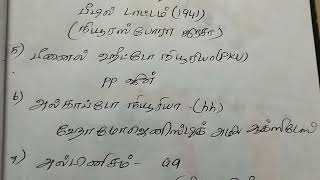 பீடில் டாட்டம் (1941)
(நியூரஸ்போரா கிரசா)
5) பினைல் கீட்டோ நியூரியா (PKU)
PP ஜீன்
6) அல்காப்டோ நியூரியா - (hh)
ஹோமோஜென்டிசிக் அமில ஆக்ஸிடேஸ்
7) அல்பினிசம் - aa